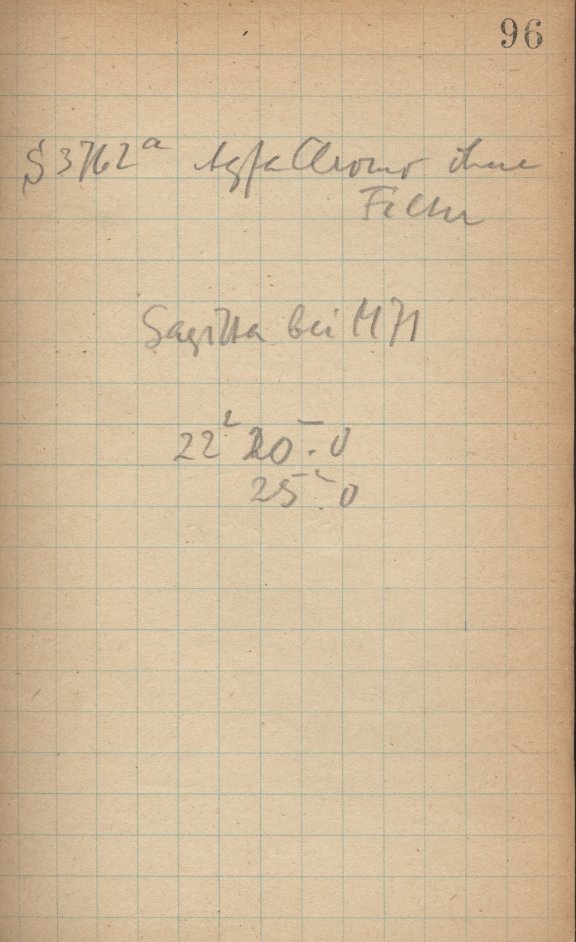 96
S 3762a Agfa Chromo ohne
Filter
Sagitta bei M71
22h 20m.0
25m.0